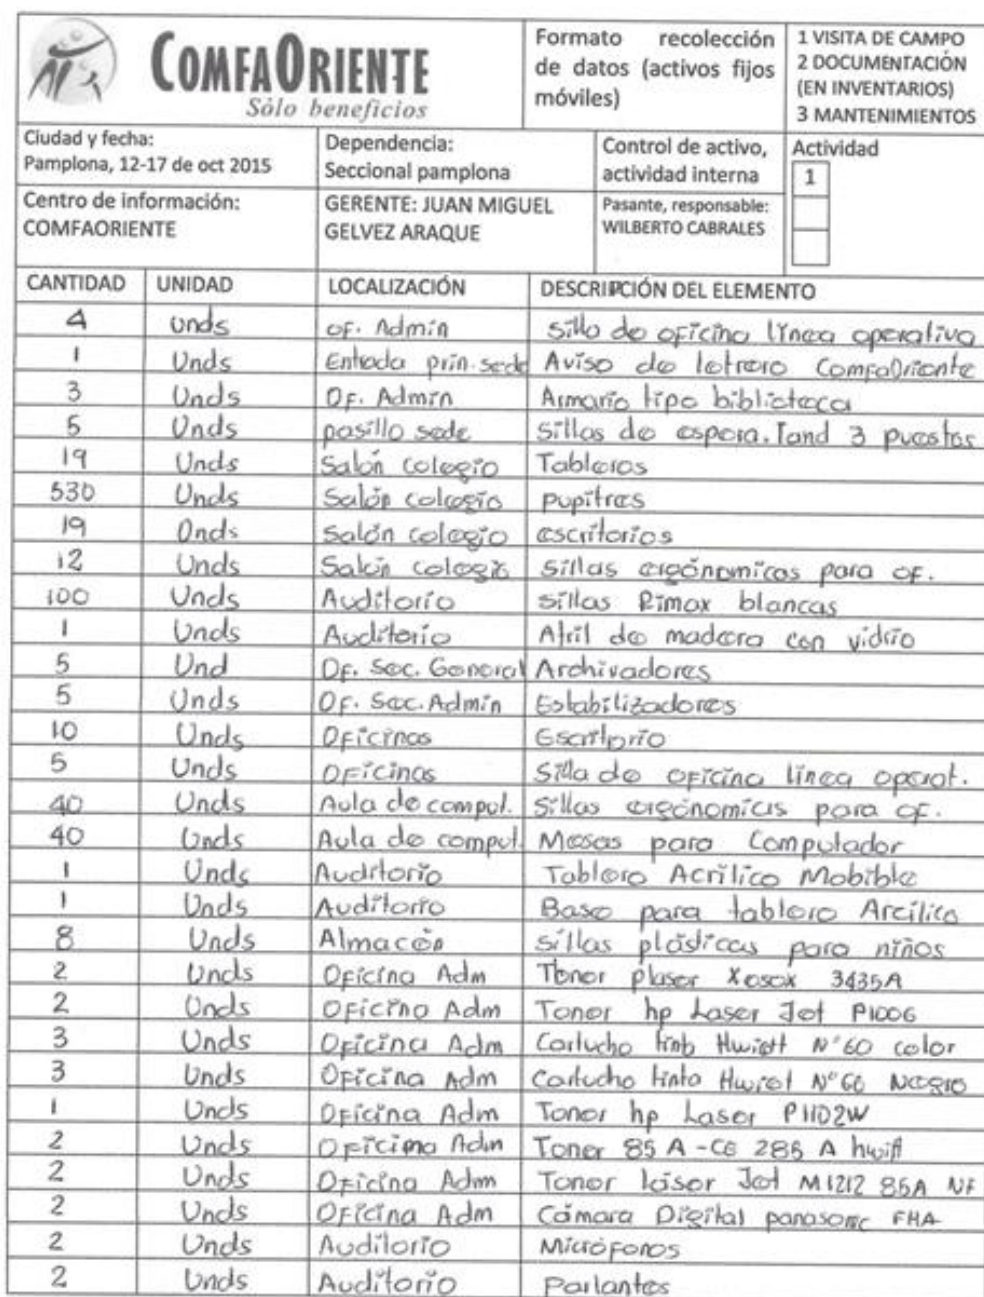 COMFAORIENTE
Sólo beneficios
Formato recolección de datos (activos fijos móviles)
1 VISITA DE CAMPO
2 DOCUMENTACIÓN
(EN INVENTARIOS)
3 MANTENIMIENTOS
Ciudad y fecha:
Pamplona, 12-17 de oct 2015
Dependencia:
Seccional pamplona
Control de activo,
actividad interna
Actividad
1
Centro de información:
COMFAORIENTE
GERENTE: JUAN MIGUEL
GELVEZ ARAQUE
Pasante, responsable:
WILBERTO CABRALES
CANTIDAD UNIDAD LOCALIZACIÓN DESCRIPCIÓN DEL ELEMENTO
4 Unds of. Admin silla de oficina linea operativa
1 Unds Entrada prin. sede Aviso de letrero ComfaOriente
3 Unds Of. Admin Armario tipo biblioteca
5 Unds pasillo sede sillas de espera. Tand 3 puestos
19 Unds Salón colegio Tableros
530 Unds Salón colegio pupitres
19 Unds Salón colegio escritorios
12 Unds Salón colegio sillas ergónomicas para of.
100 Unds Auditorio sillas Rimax blancas
1 Unds Auditorio Atril de madera con vidrio
5 Und Of. Sec. General Archivadores
5 Unds Of. Sec. Admin Estabilizadores
10 Unds Oficinas Escritorio
5 Unds Oficinas Silla de oficina linea operat.
40 Unds Aula de comput. Sillas ergónomicas para of.
40 Unds Aula de comput. Mesas para Computador
1 Unds Auditorio Tablero Acrilico Mobible
1 Unds Auditorio Base para tablero Arcilico
8 Unds Almacén sillas plásticas para niños
2 Unds Oficina Adm Toner 3435A
2 Unds Oficina Adm Toner hp Laser Jet P1006
3 Unds Oficina Adm Cartucho N°60 color
3 Unds Oficina Adm Cartucho tinta N°60 Negro
1 Unds Oficina Adm Toner hp Laser P1102W
2 Unds Oficina Adm Toner 85 A - CE 285 A
2 Unds Oficina Adm Toner láser Jet M1212 85A NF
2 Unds Oficina Adm Cámara Digital panasonic FHA
2 Unds Auditorio Micrófonos
2 Unds Auditorio Parlantes